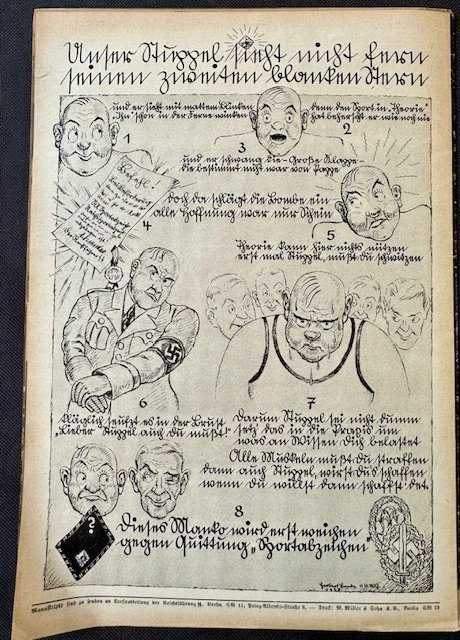 Unser Stuppel sieht nicht fern
seinen zweiten blanken Stern
und er sieht mit mattem Klinken
"Ihn" schon in der Ferne winken
1
denn den Sport in "Theorie"
hat beherrscht er wie noch nie
2
3
und er schwang die "Große Klappe"
die bestimmt nicht war von Pappe
Befehl.
4
doch da schlägt die Bombe ein
alle Hoffnung war nur Schein
5
Theorie kann hier nichts nützen
erst mal Stuppel, mußt Du schwitzen
6
kläglich seufzt es in der Brust
"Lieber Stuppel auch Du mußt!"
7
Darum Stuppel sei nicht dumm
setz das in die Praxis um
was an Wissen Dich belastet
Alle Muskeln mußt Du straffen
dann auch Stuppel, wirst Du's schaffen
wenn Du willst dann schaffst det.
8
?
Dieses Manko wird erst weichen
gegen Quittung "Sportabzeichen"
Manuskripte sind zu senden an Versandleitung der Reichsführung SS, Berlin SW 11, Prinz-Albrecht-Straße 9. — Druck: M. Müller & Sohn K. G., Berlin SW 19